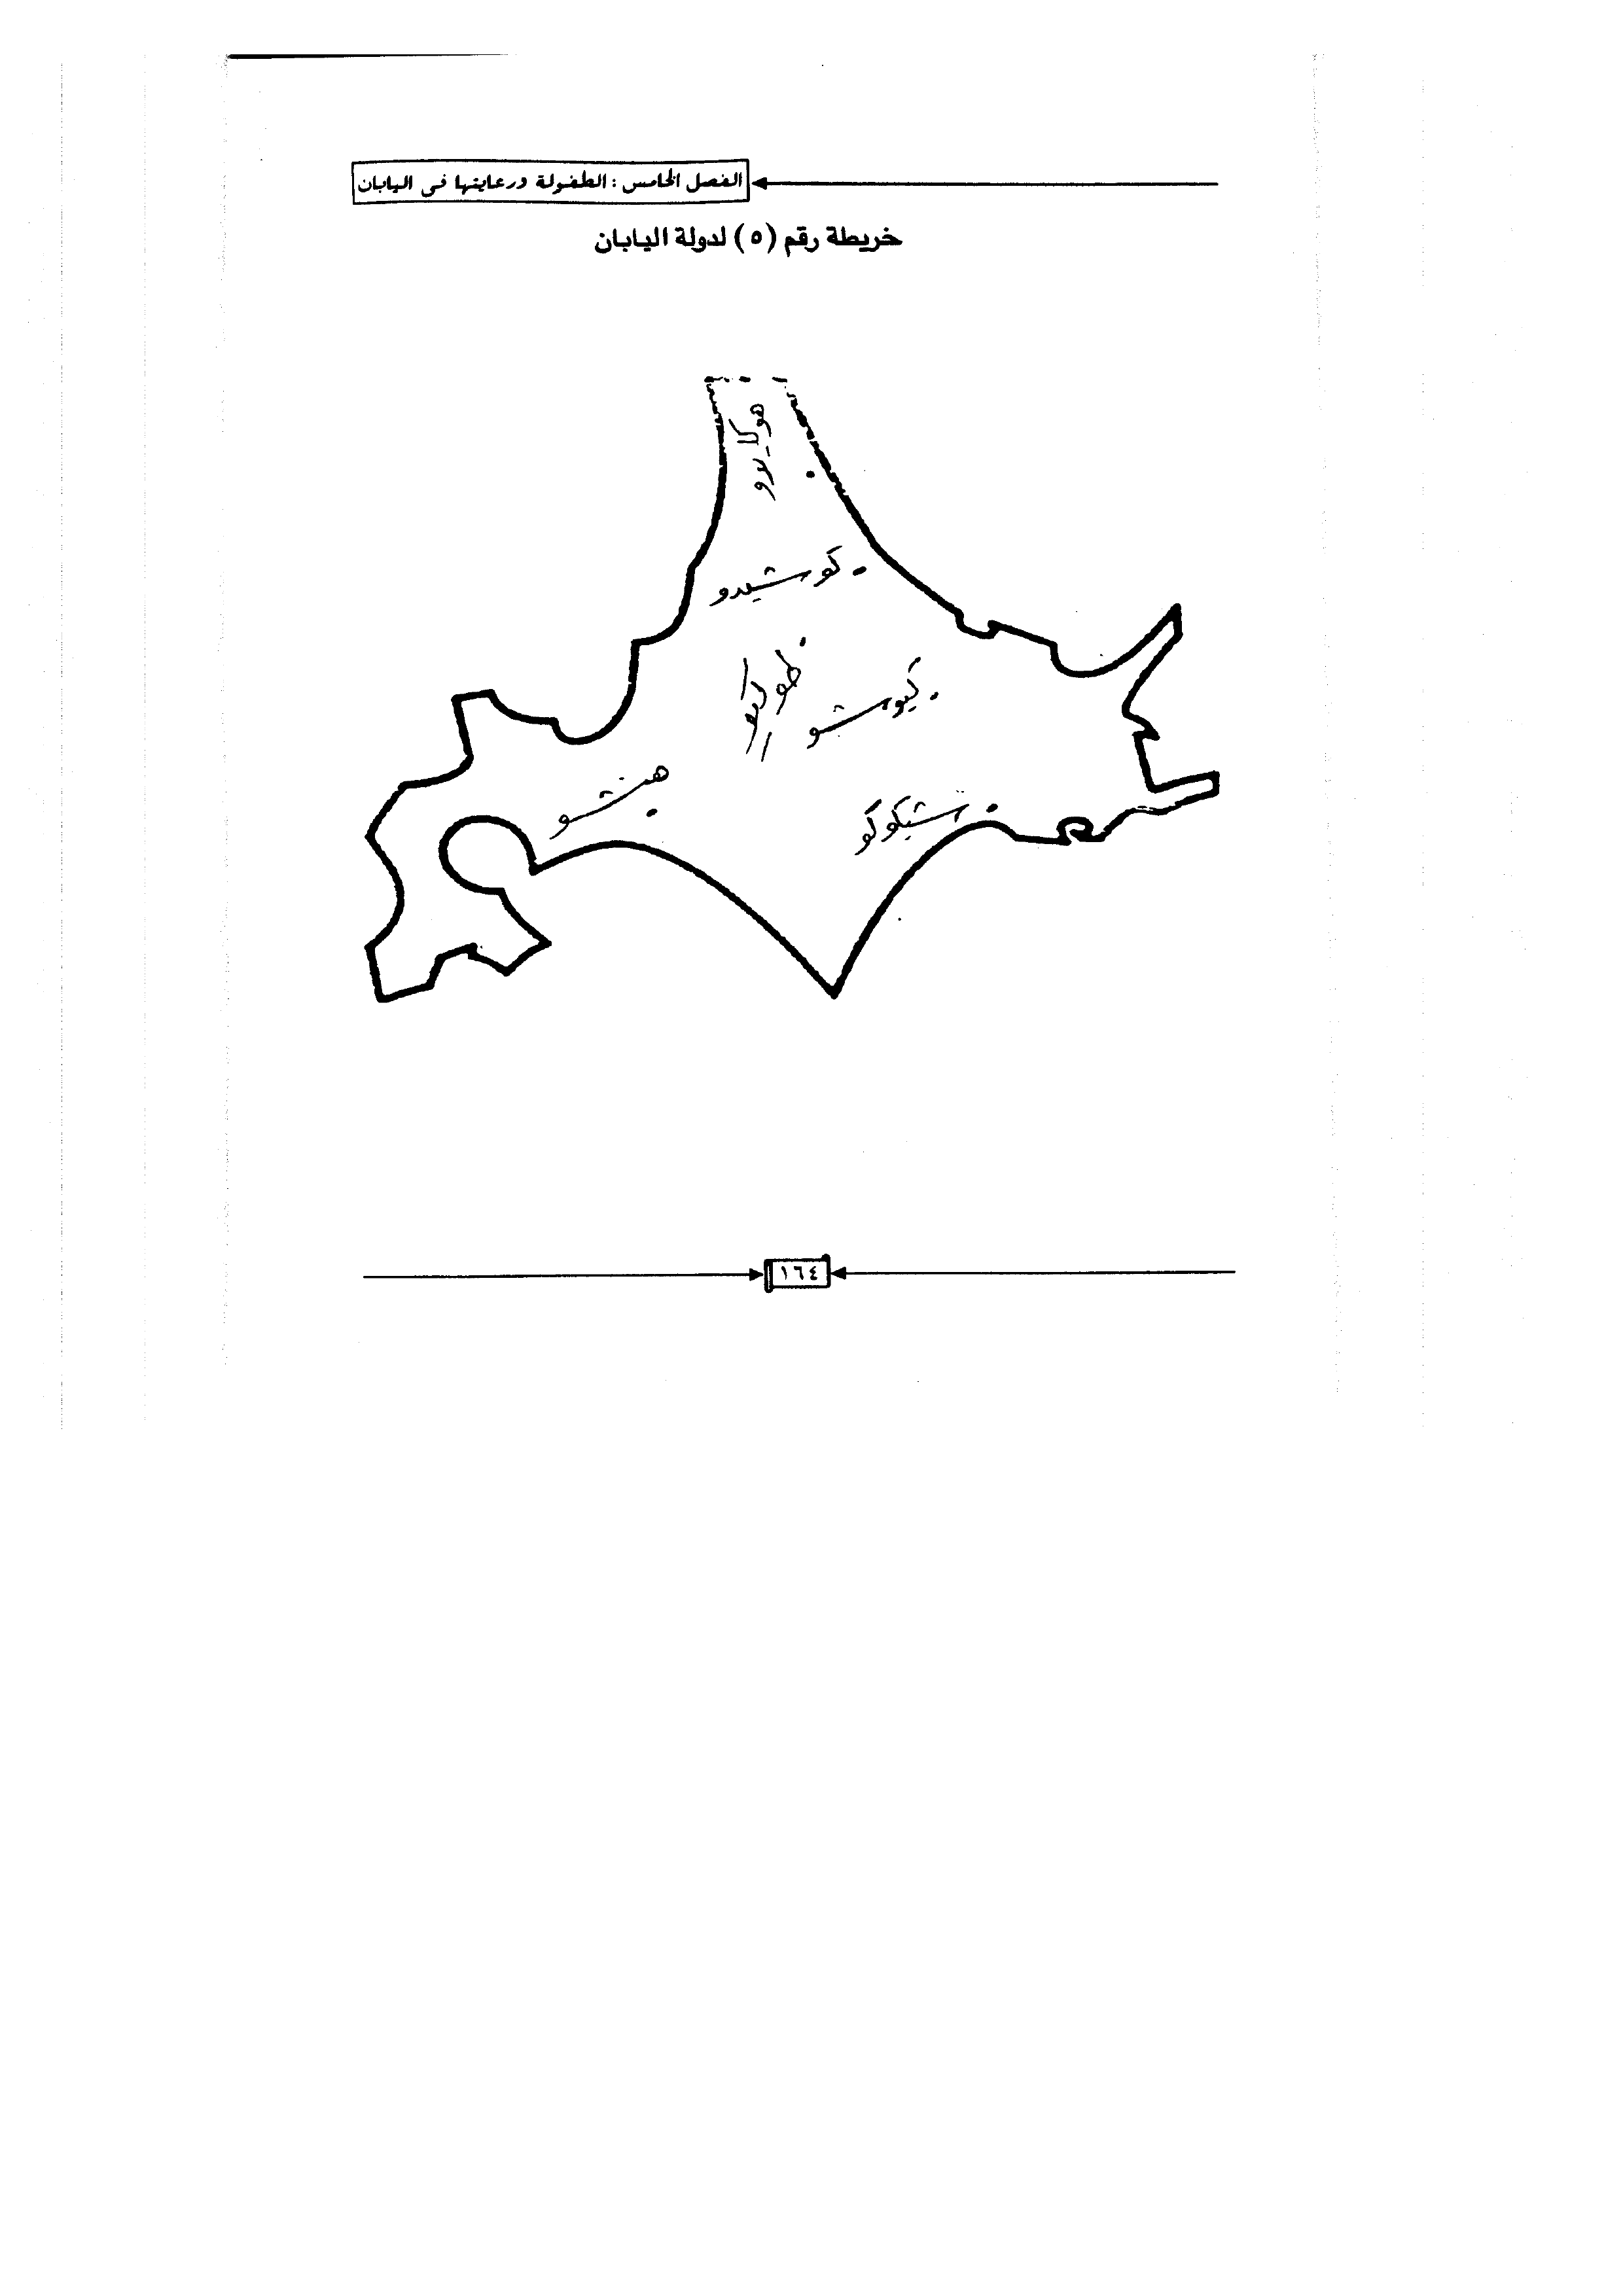 الفصل الخامس : الطفولة ورعايتها فى اليابان
خريطة رقم (٥) لدولة اليابان
كورشيدو
طوكيو
كيوشو
هنشو
شيكوكو
١٦٤